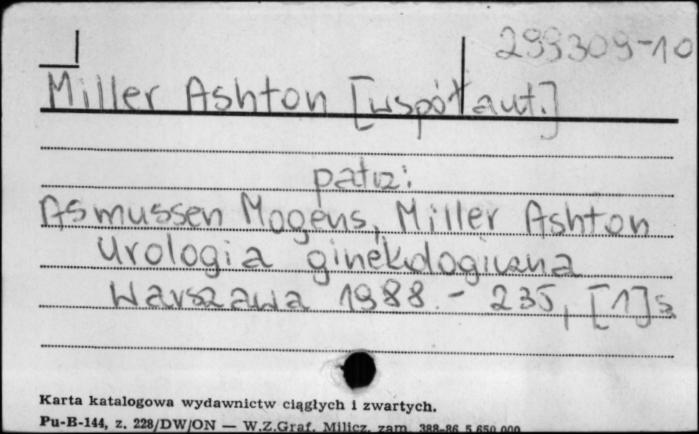 299309-10
Miller Ashton [współaut.]
patrz:
Asmussen Mogens, Miller Ashton
Urologia ginekologiczna
Warszawa 1988. - 235, [1] s.
Karta katalogowa wydawnictw ciągłych i zwartych.
Pu-B-144, z. 228/DW/ON — W.Z.Graf. Milicz, zam. 388-86 5.650.000